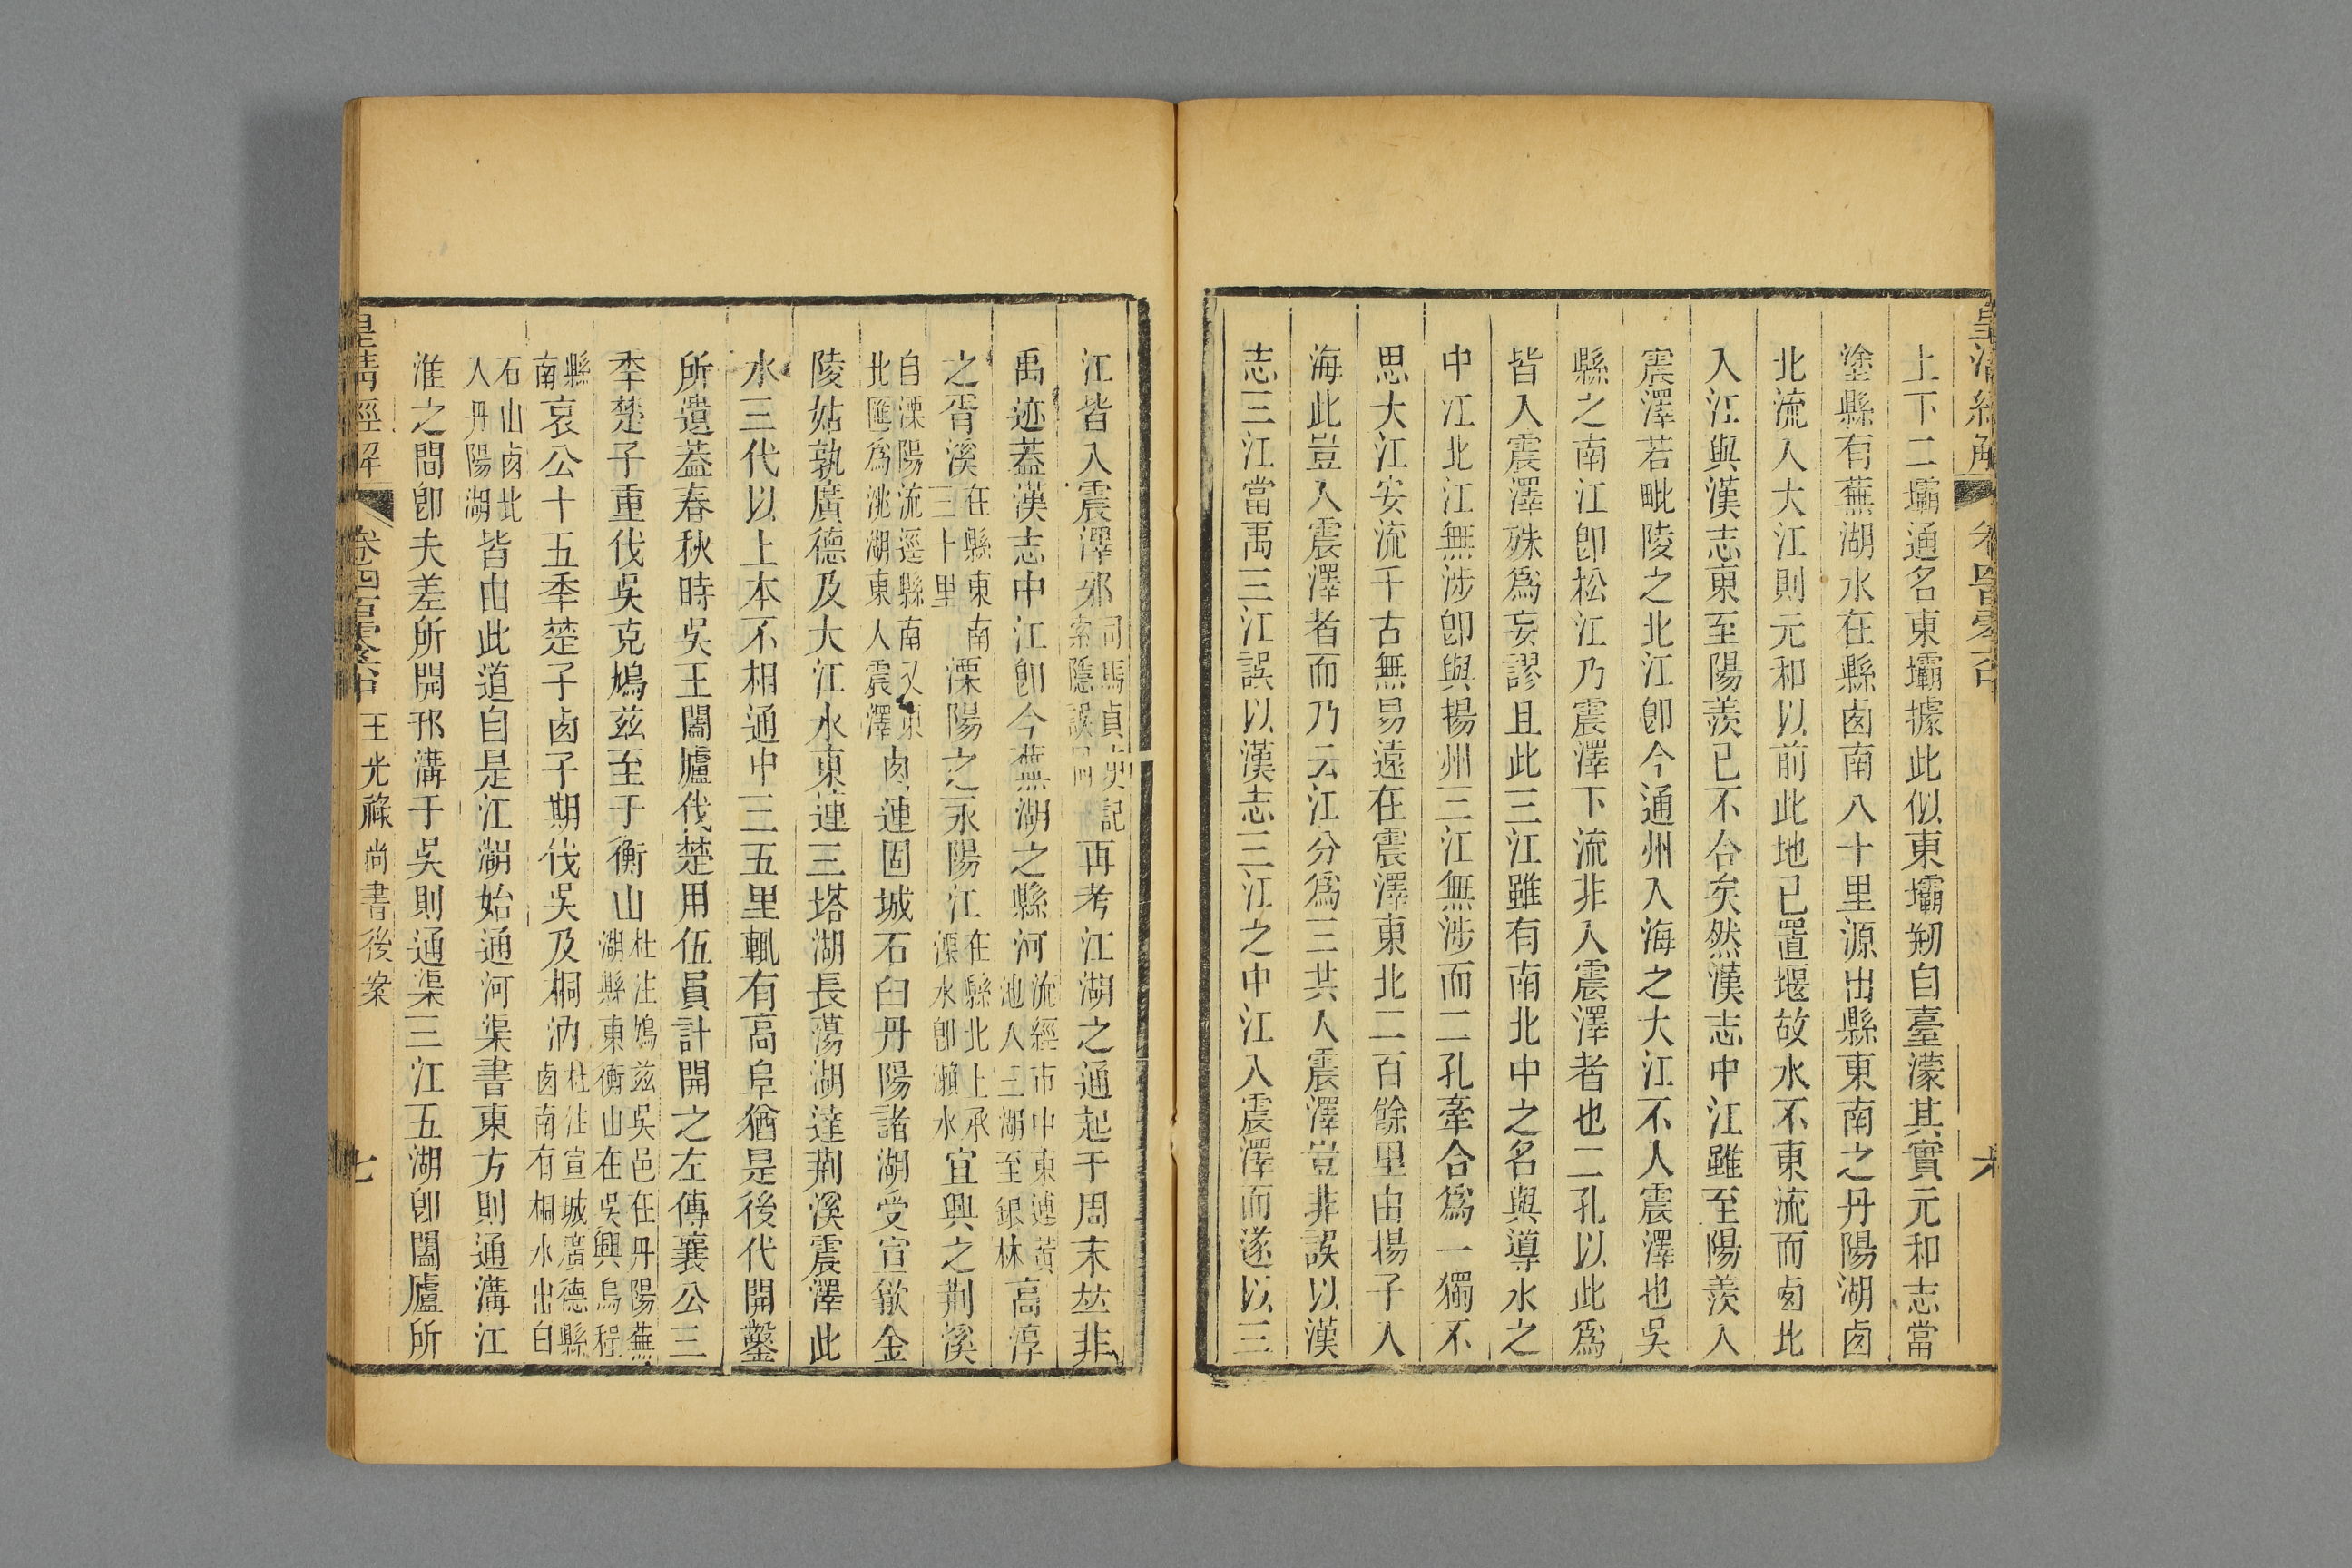 上下二壩通名東壩據此似東壩剏自臺濛其實元和志當
塗縣有蕪湖水在縣卤南八十里源出縣東南之丹陽湖卤
北流入大江則元和以前此地已置堰故水不東流而卤北
入江與漢志東至陽羨已不合矣然漢志中江雖至陽羨入
震澤若毗陵之北江卽今通州入海之大江不入震澤也吳
縣之南江卽松江乃震澤下流非入震澤者也二孔以此爲
皆入震澤殊爲妄謬且此三江雖有南北中之名與導水之
中江北江無涉卽與揚州三江無涉而二孔牽合爲一獨不
思大江安流千古無易遠在震澤東北二百餘里由揚子入
海此豈入震澤者而乃云江分爲三共入震澤豈非誤以漢
志三江當禹三江誤以漢志三江之中江入震澤而遂以三
江皆入震澤邪司馬貞史記索隱誤同再考江湖之通起于周末竝非
禹迹蓋漢志中江卽今蕪湖之縣河流經市中東連黃池入三湖至銀林高淳
之胥溪在縣東南三十里溧陽之永陽江在縣北上承溧水卽瀨水宜興之荆溪
自溧陽流逕縣南又東北匯爲洮湖東入震澤卤連固城石臼丹陽諸湖受宣歙金
陵姑孰廣德及大江水東連三塔湖長蕩湖達荆溪震澤此
水三代以上本不相通中三五里輒有高阜猶是後代開鑿
所遺蓋春秋時吳王闔廬伐楚用伍員計開之左傳襄公三
秊楚子重伐吳克鳩兹至于衡山杜注鳩兹吳邑在丹陽蕪湖縣東衡山在吳興烏程
縣南哀公十五秊楚子卤子期伐吳及桐汭杜注宣城廣德縣卤南有桐水出白
石山卤北入丹陽湖皆由此道自是江湖始通河渠書東方則通溝江
淮之間卽夫差所開邗溝于吳則通渠三江五湖卽闔廬所
皇清經解 卷四百零六 王光祿尚書後案 七